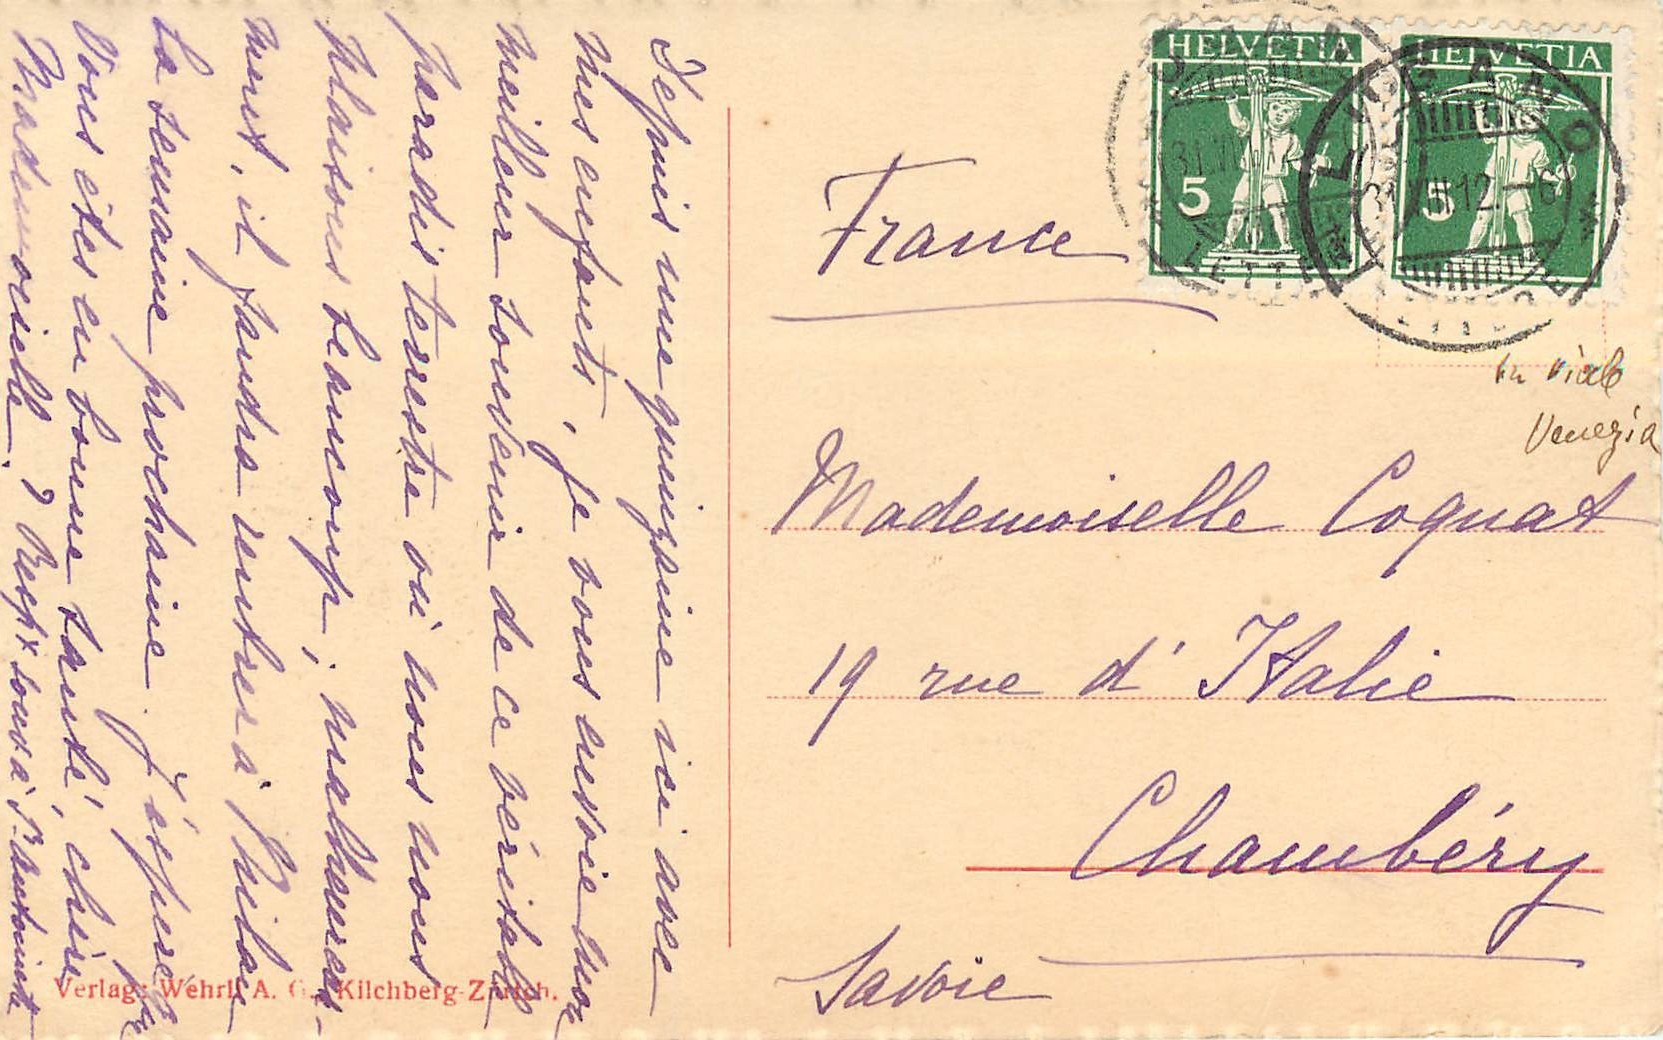 Depuis une quinzaine ici avec
mes enfants, je vous envoie mon
meilleur souvenir de ce véritable
paradis terrestre où nous nous
plaisons beaucoup; malheureuse-
ment, il faudra rentrer à Milan
la semaine prochaine. J'espère que
vous êtes en bonne santé, chère
Mademoiselle.
Verlag: Wehrli A. G., Kilchberg-Zürich.
HELVETIA
5
HELVETIA
5
LUGANO
31.VIII.12.-6
France
in viale
Venezia
Mademoiselle Cognat
19 rue d'Italie
Chambéry
Savoie